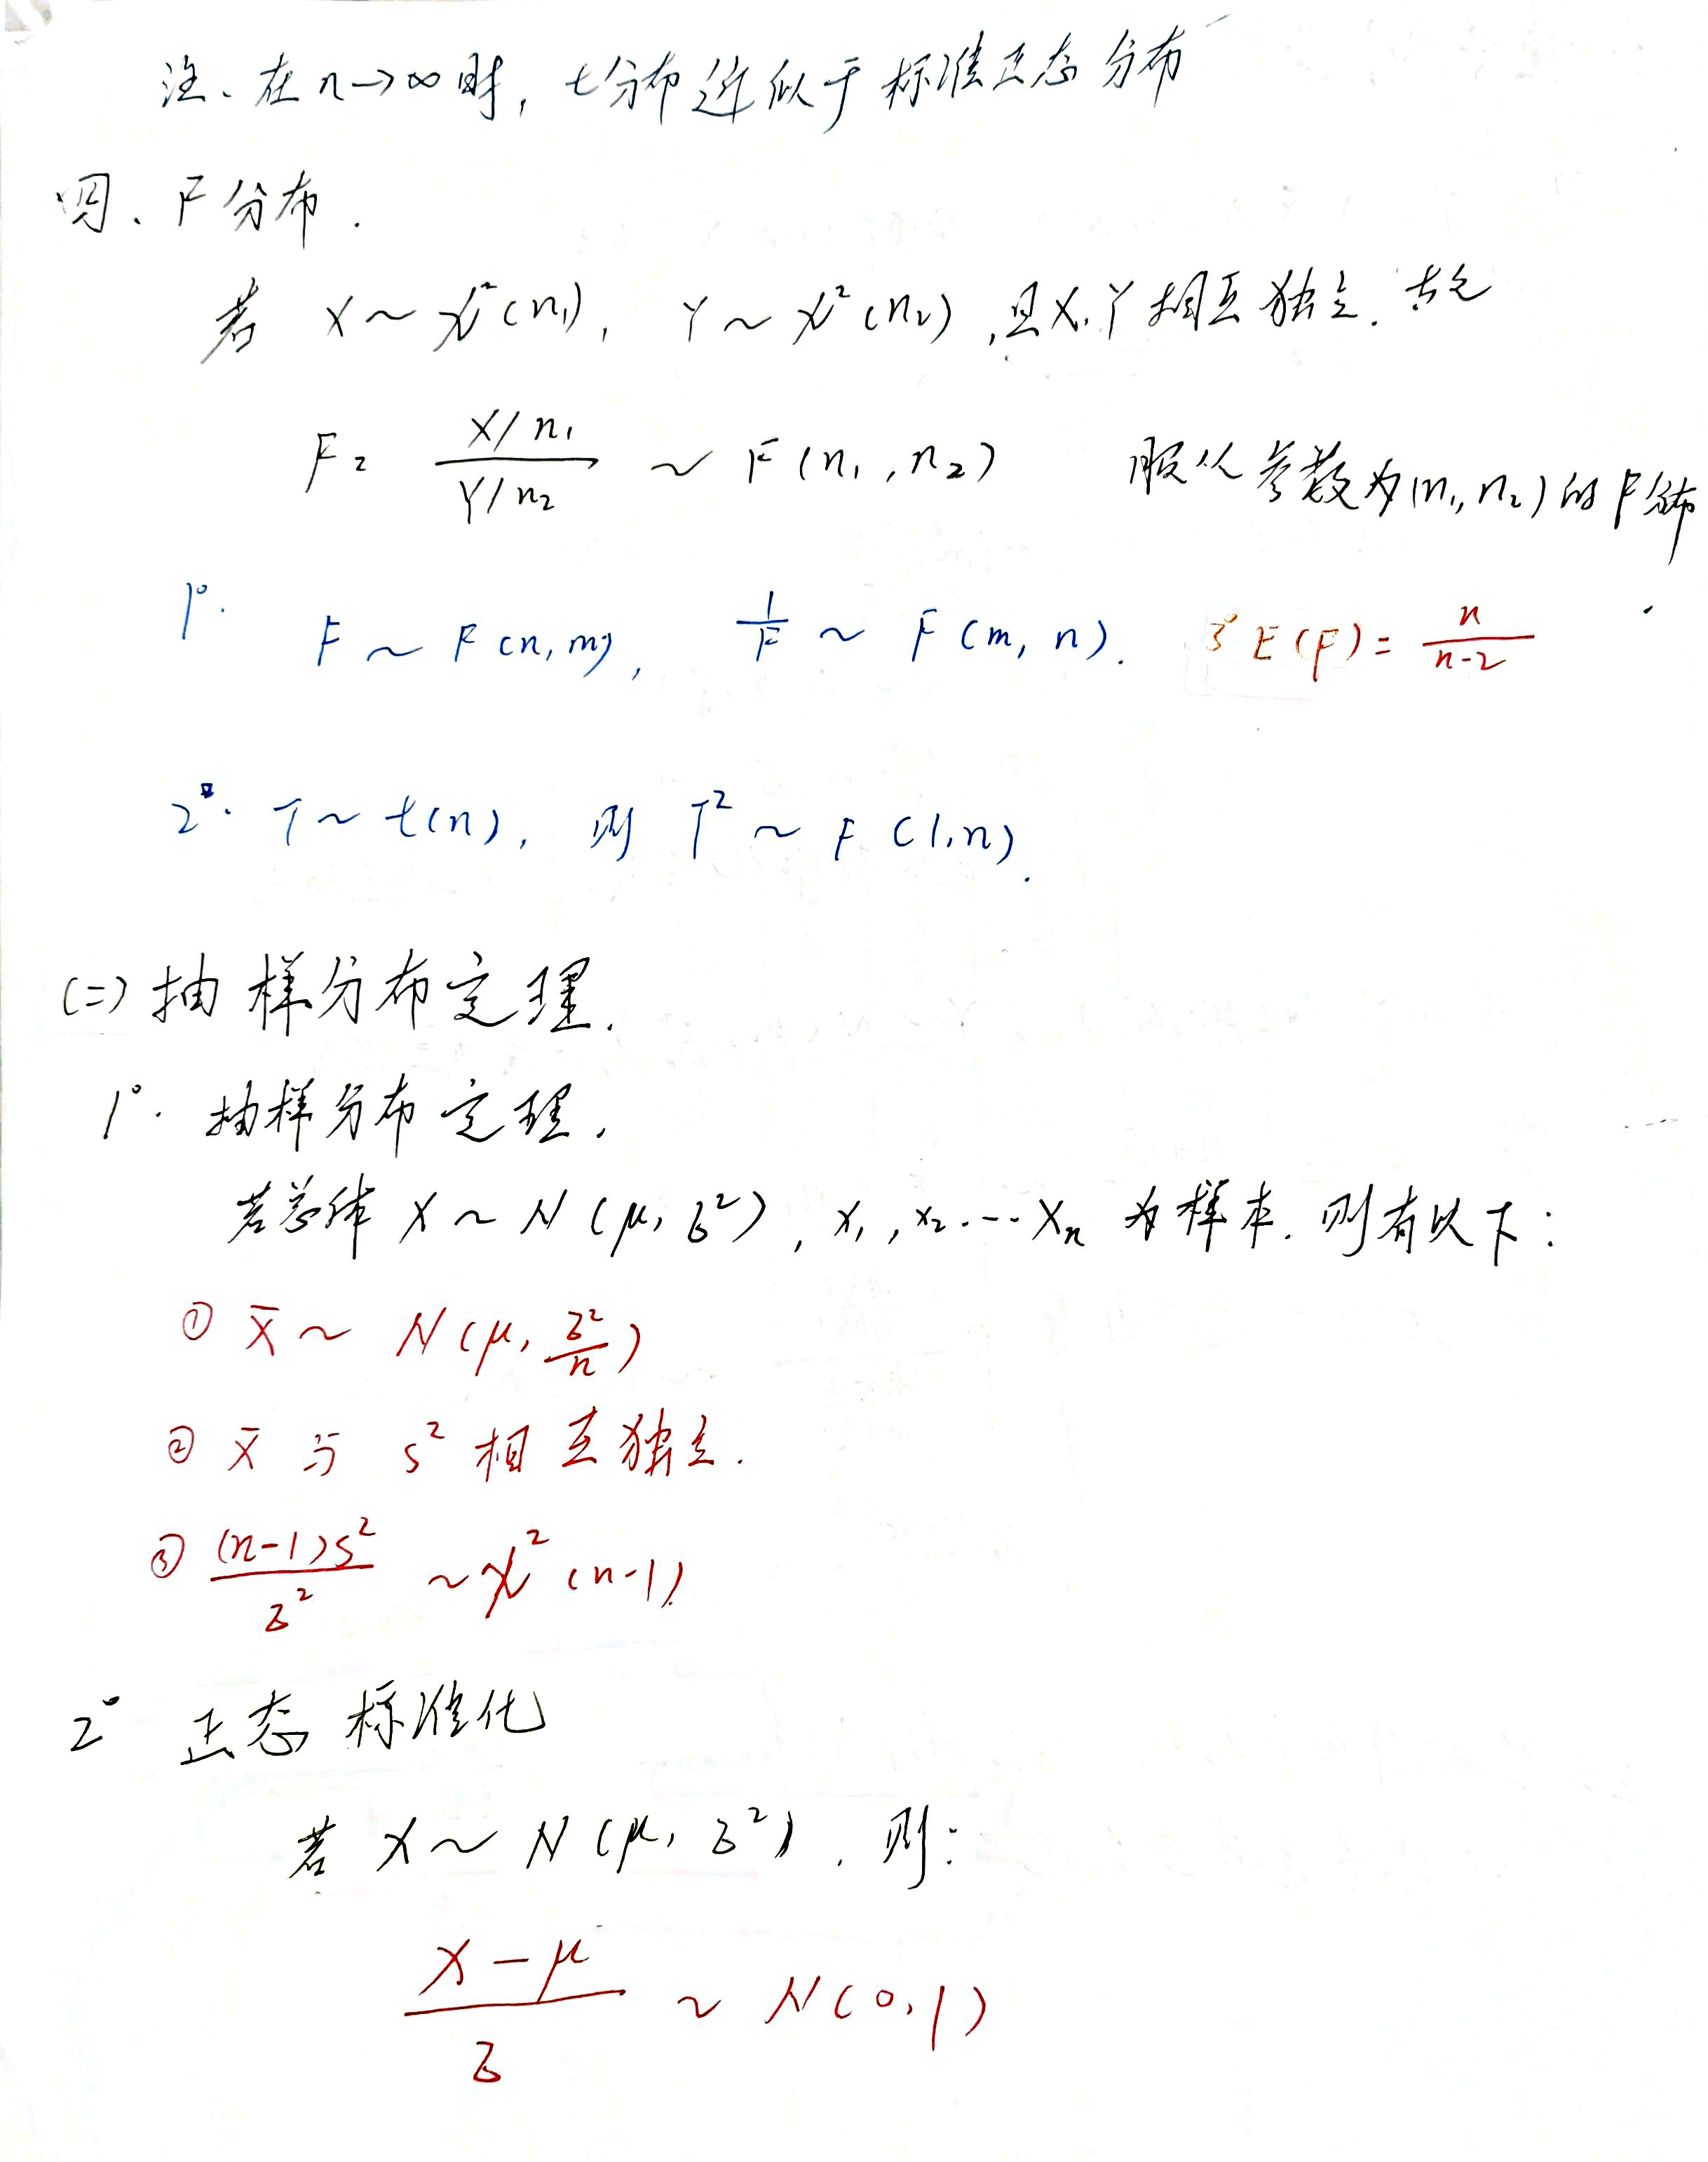 注、在n→∞时，t分布近似于标准正态分布
四、F分布.
若 X ~ χ²(n₁), Y ~ χ²(n₂), 且X, Y相互独立.
F = (X/n₁)/(Y/n₂) ~ F(n₁, n₂) 服从参数为(n₁, n₂)的F分布
1°. F ~ F(n, m), 1/F ~ F(m, n). 3° E(F) = n/(n-2)
2°. T ~ t(n), 则 T² ~ F(1, n).
(二) 抽样分布定理.
1°. 抽样分布定理.
若总体 X ~ N(μ, σ²), x₁, x₂ ... xₙ 为样本. 则有以下:
① x̄ ~ N(μ, σ²/n)
② x̄ 与 s² 相互独立.
③ (n-1)s²/σ² ~ χ²(n-1)
2° 正态标准化
若 X ~ N(μ, σ²), 则:
(x-μ)/σ ~ N(0, 1)